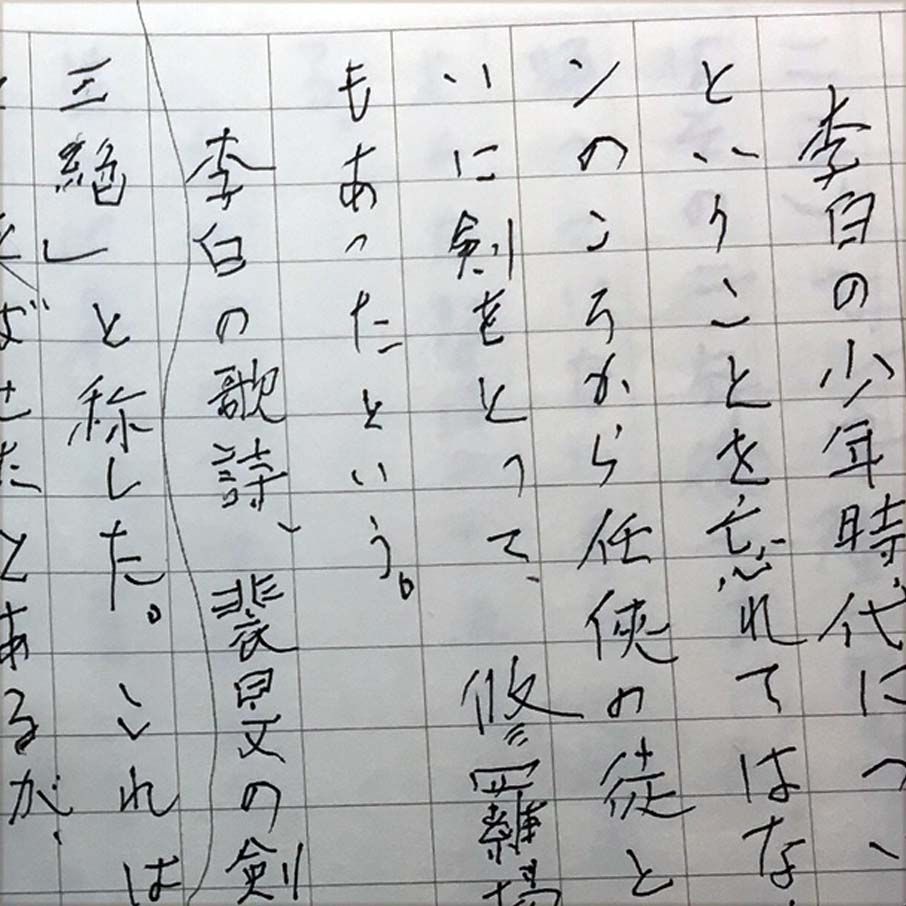 李白の少年時代につ
ということを忘れてはな
ンのころから任侠の徒と
いに剣をとって、修羅場
もあったという。
李白の歌詩、裴旻の剣
三絶」と称した。これは
ばせたとあるが、